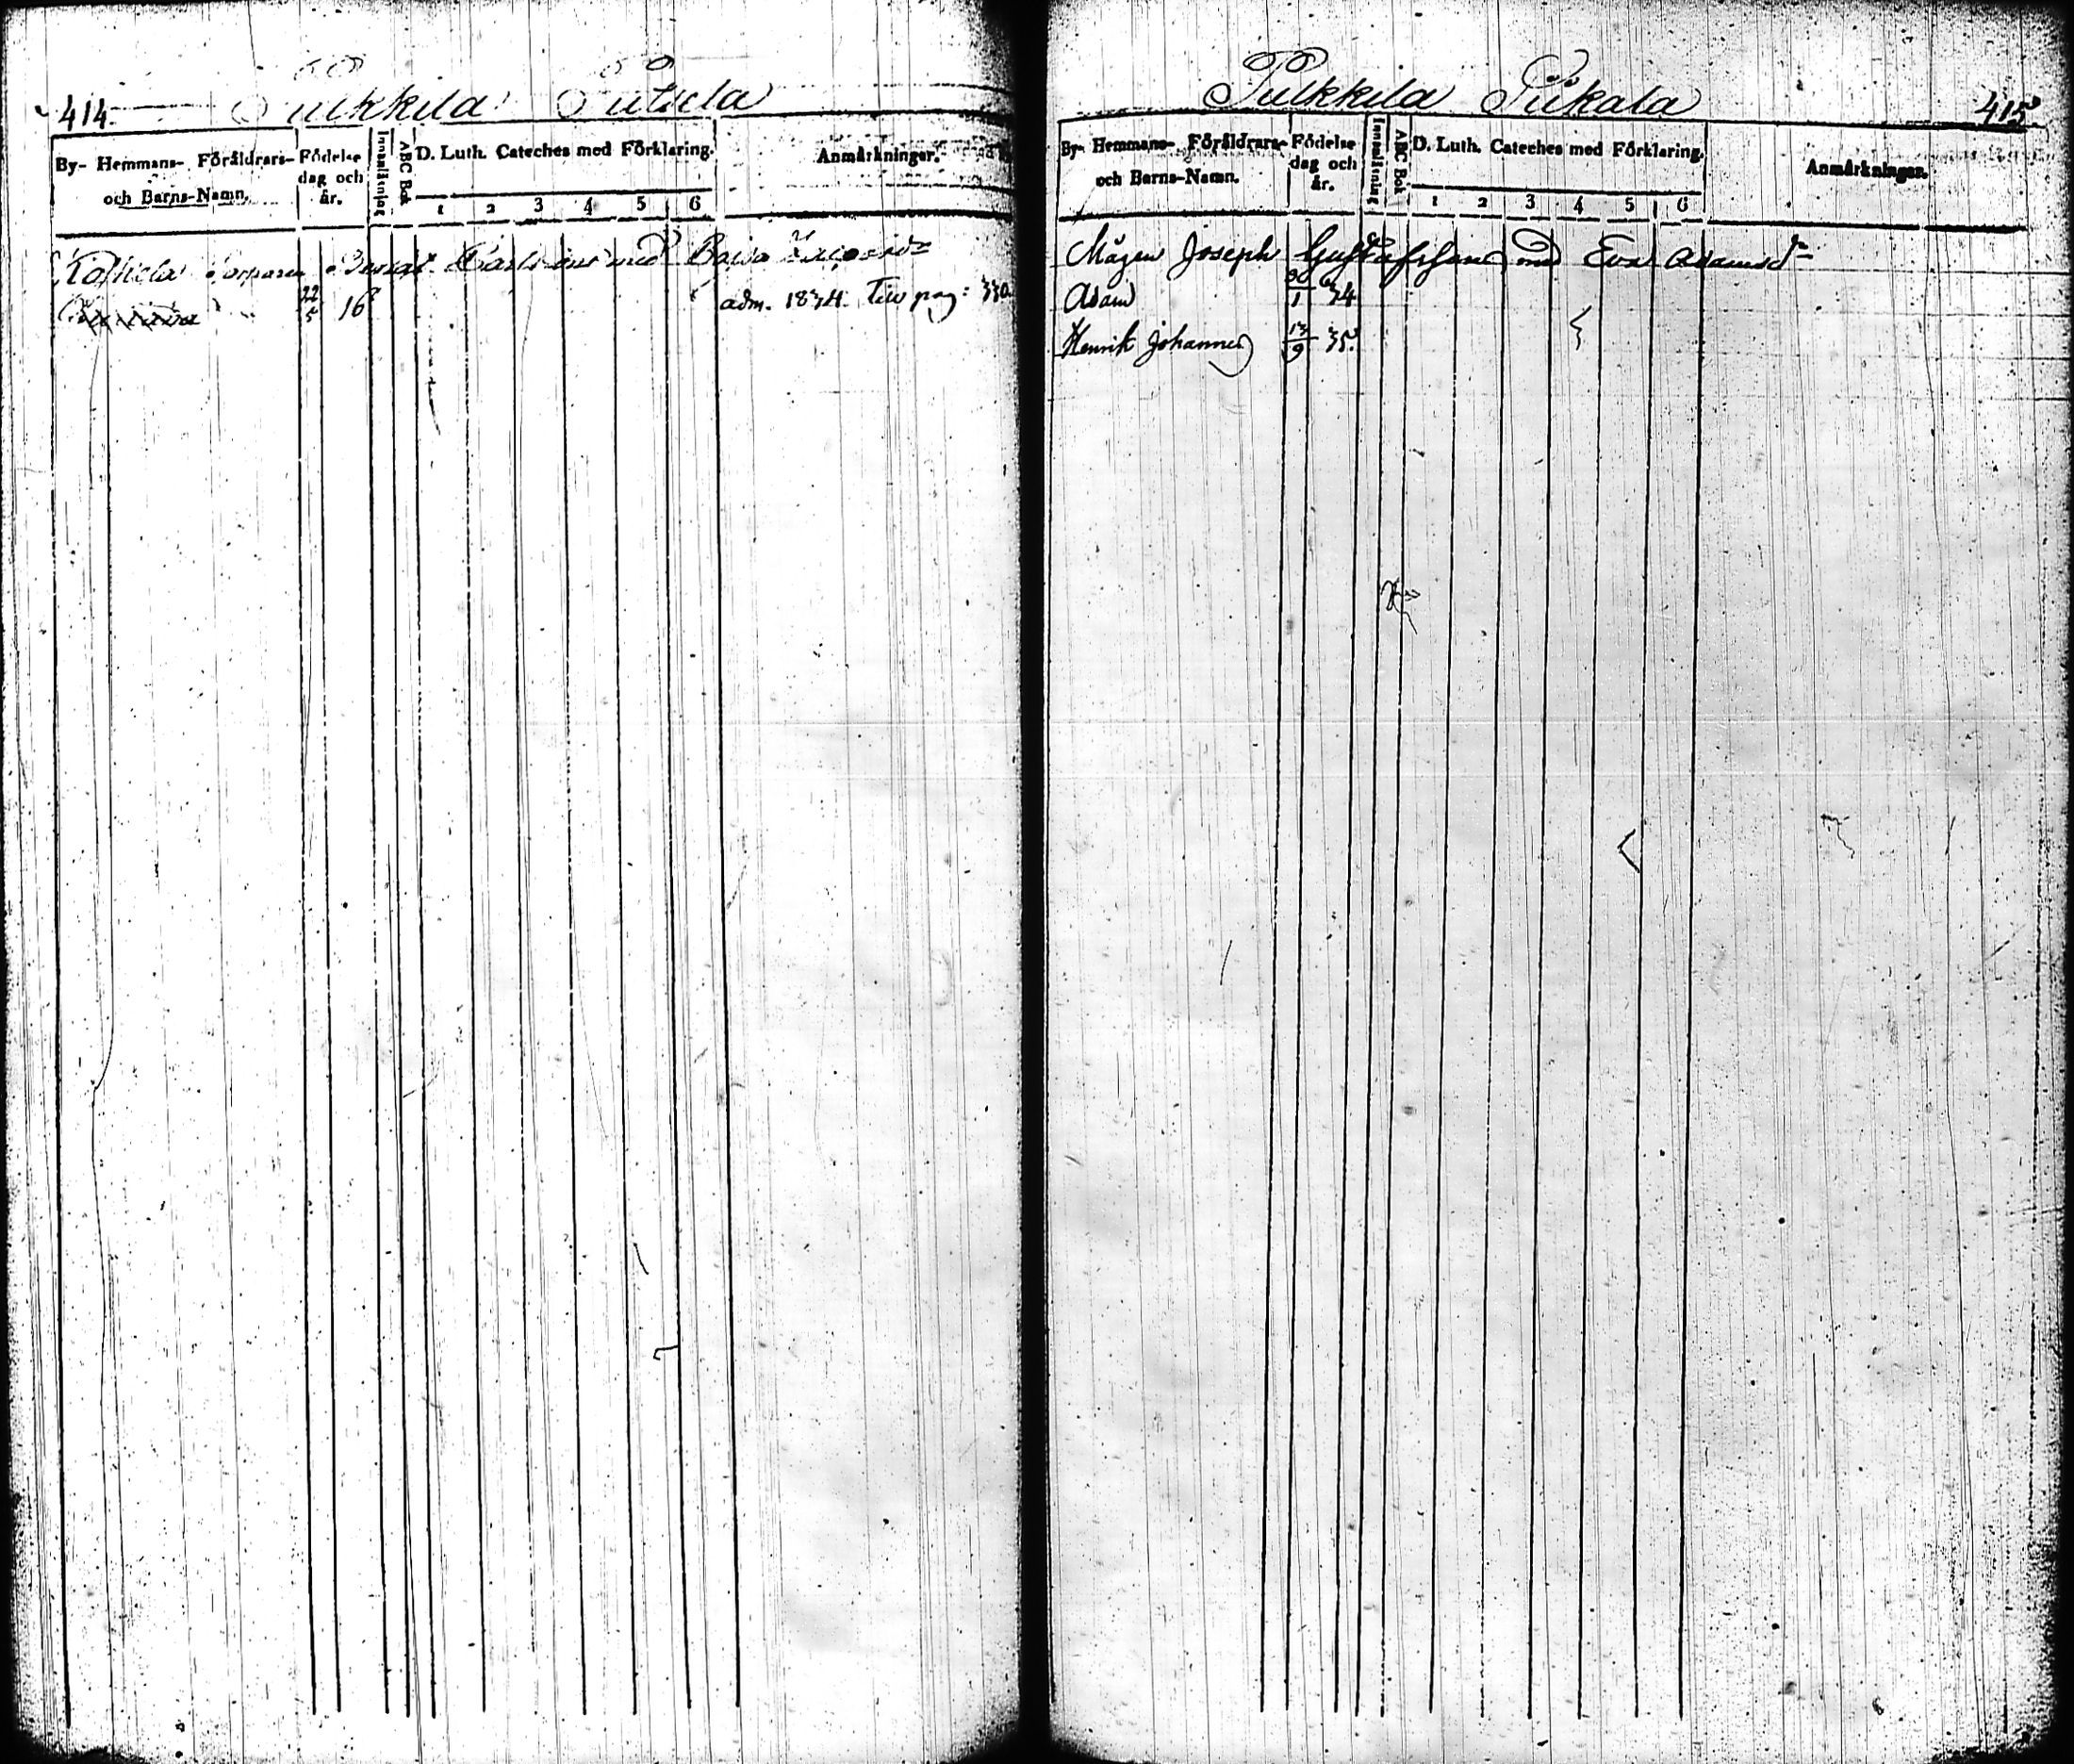 414
Pulkkila
By- Hemmans- Föräldrars-
och Barns-Namn.
Födelse
dag och
år.
Innanläsning
ABC Bok
D. Luth. Cateches med Förklaring.
1 2 3 4 5 6
Anmärkningar.
med Caisa
22/5 16
adm. 1834. Till pag: 330.
Pulkkila Pukala
415
By- Hemmans- Föräldrars-
och Barns-Namn.
Födelse
dag och
år.
Innanläsning
ABC Bok
D. Luth. Cateches med Förklaring.
1 2 3 4 5 6
Anmärkningar.
Mågen Joseph Gustafsson med Eva Adamsdr
Adam 30/1 34
Henrik Johannes 13/9 35.